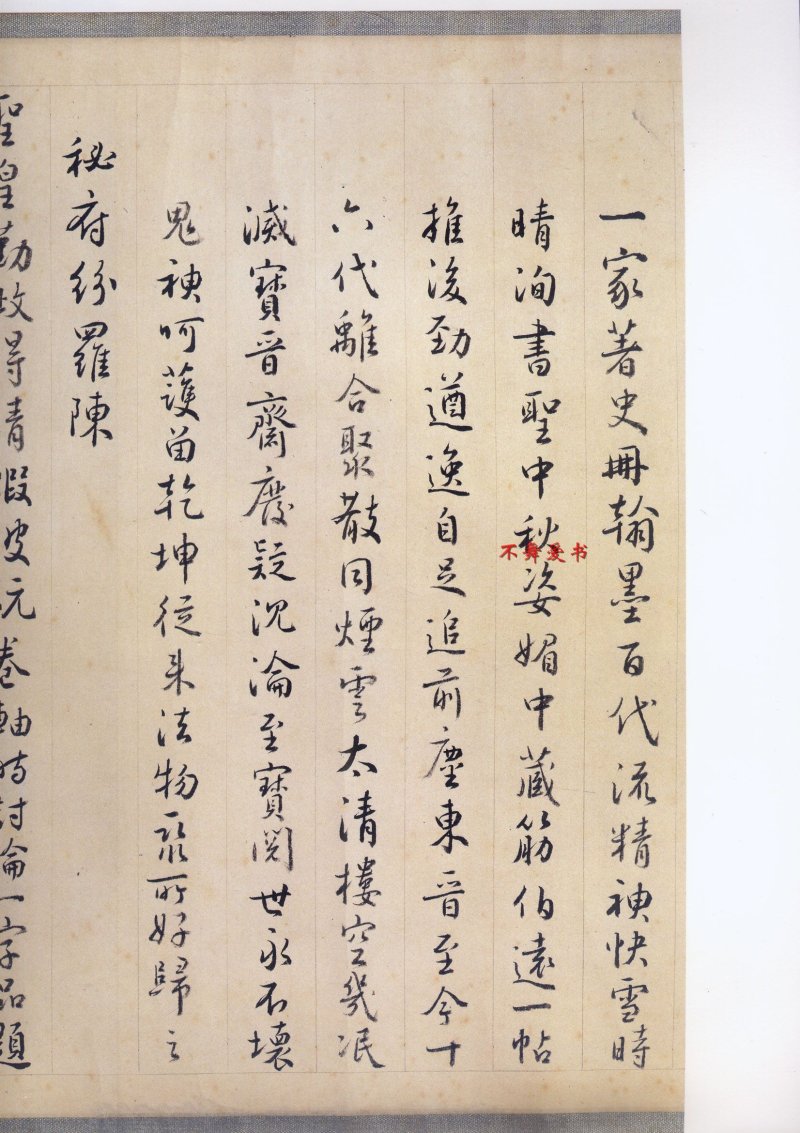 一家著史冊翰墨百代流精神快雪時
晴洵書聖中秋姿媚中藏筋伯遠一帖
推後勁遒逸自足追前塵東晉至今十
六代離合聚散同煙雲太清樓空幾泯
滅寶晉齋廢疑沉淪至寶閱世永不壞
鬼神呵護留乾坤從来法物聚所好歸之
秘府紛羅陳
聖皇勤政尋青暇皮元卷軸時討論一字品題
不舞愛书